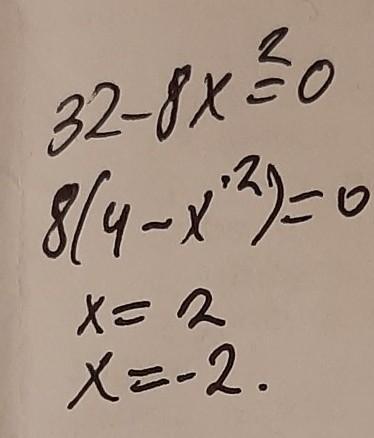 32-8x²=0
8(4-x²)=0
x=2
x=-2.